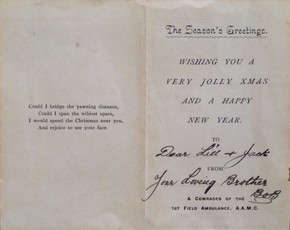 Could I bridge the yawning distance,
Could I span the wildest space,
I would spend the Christmas near you,
And rejoice to see your face.
The Season's Greetings.
WISHING YOU A
VERY JOLLY XMAS
AND A HAPPY
NEW YEAR.
TO
Dear Lill & Jack
FROM
Your Loving Brother
Bob
& COMRADES OF THE
1ST FIELD AMBULANCE, A.A.M.C.